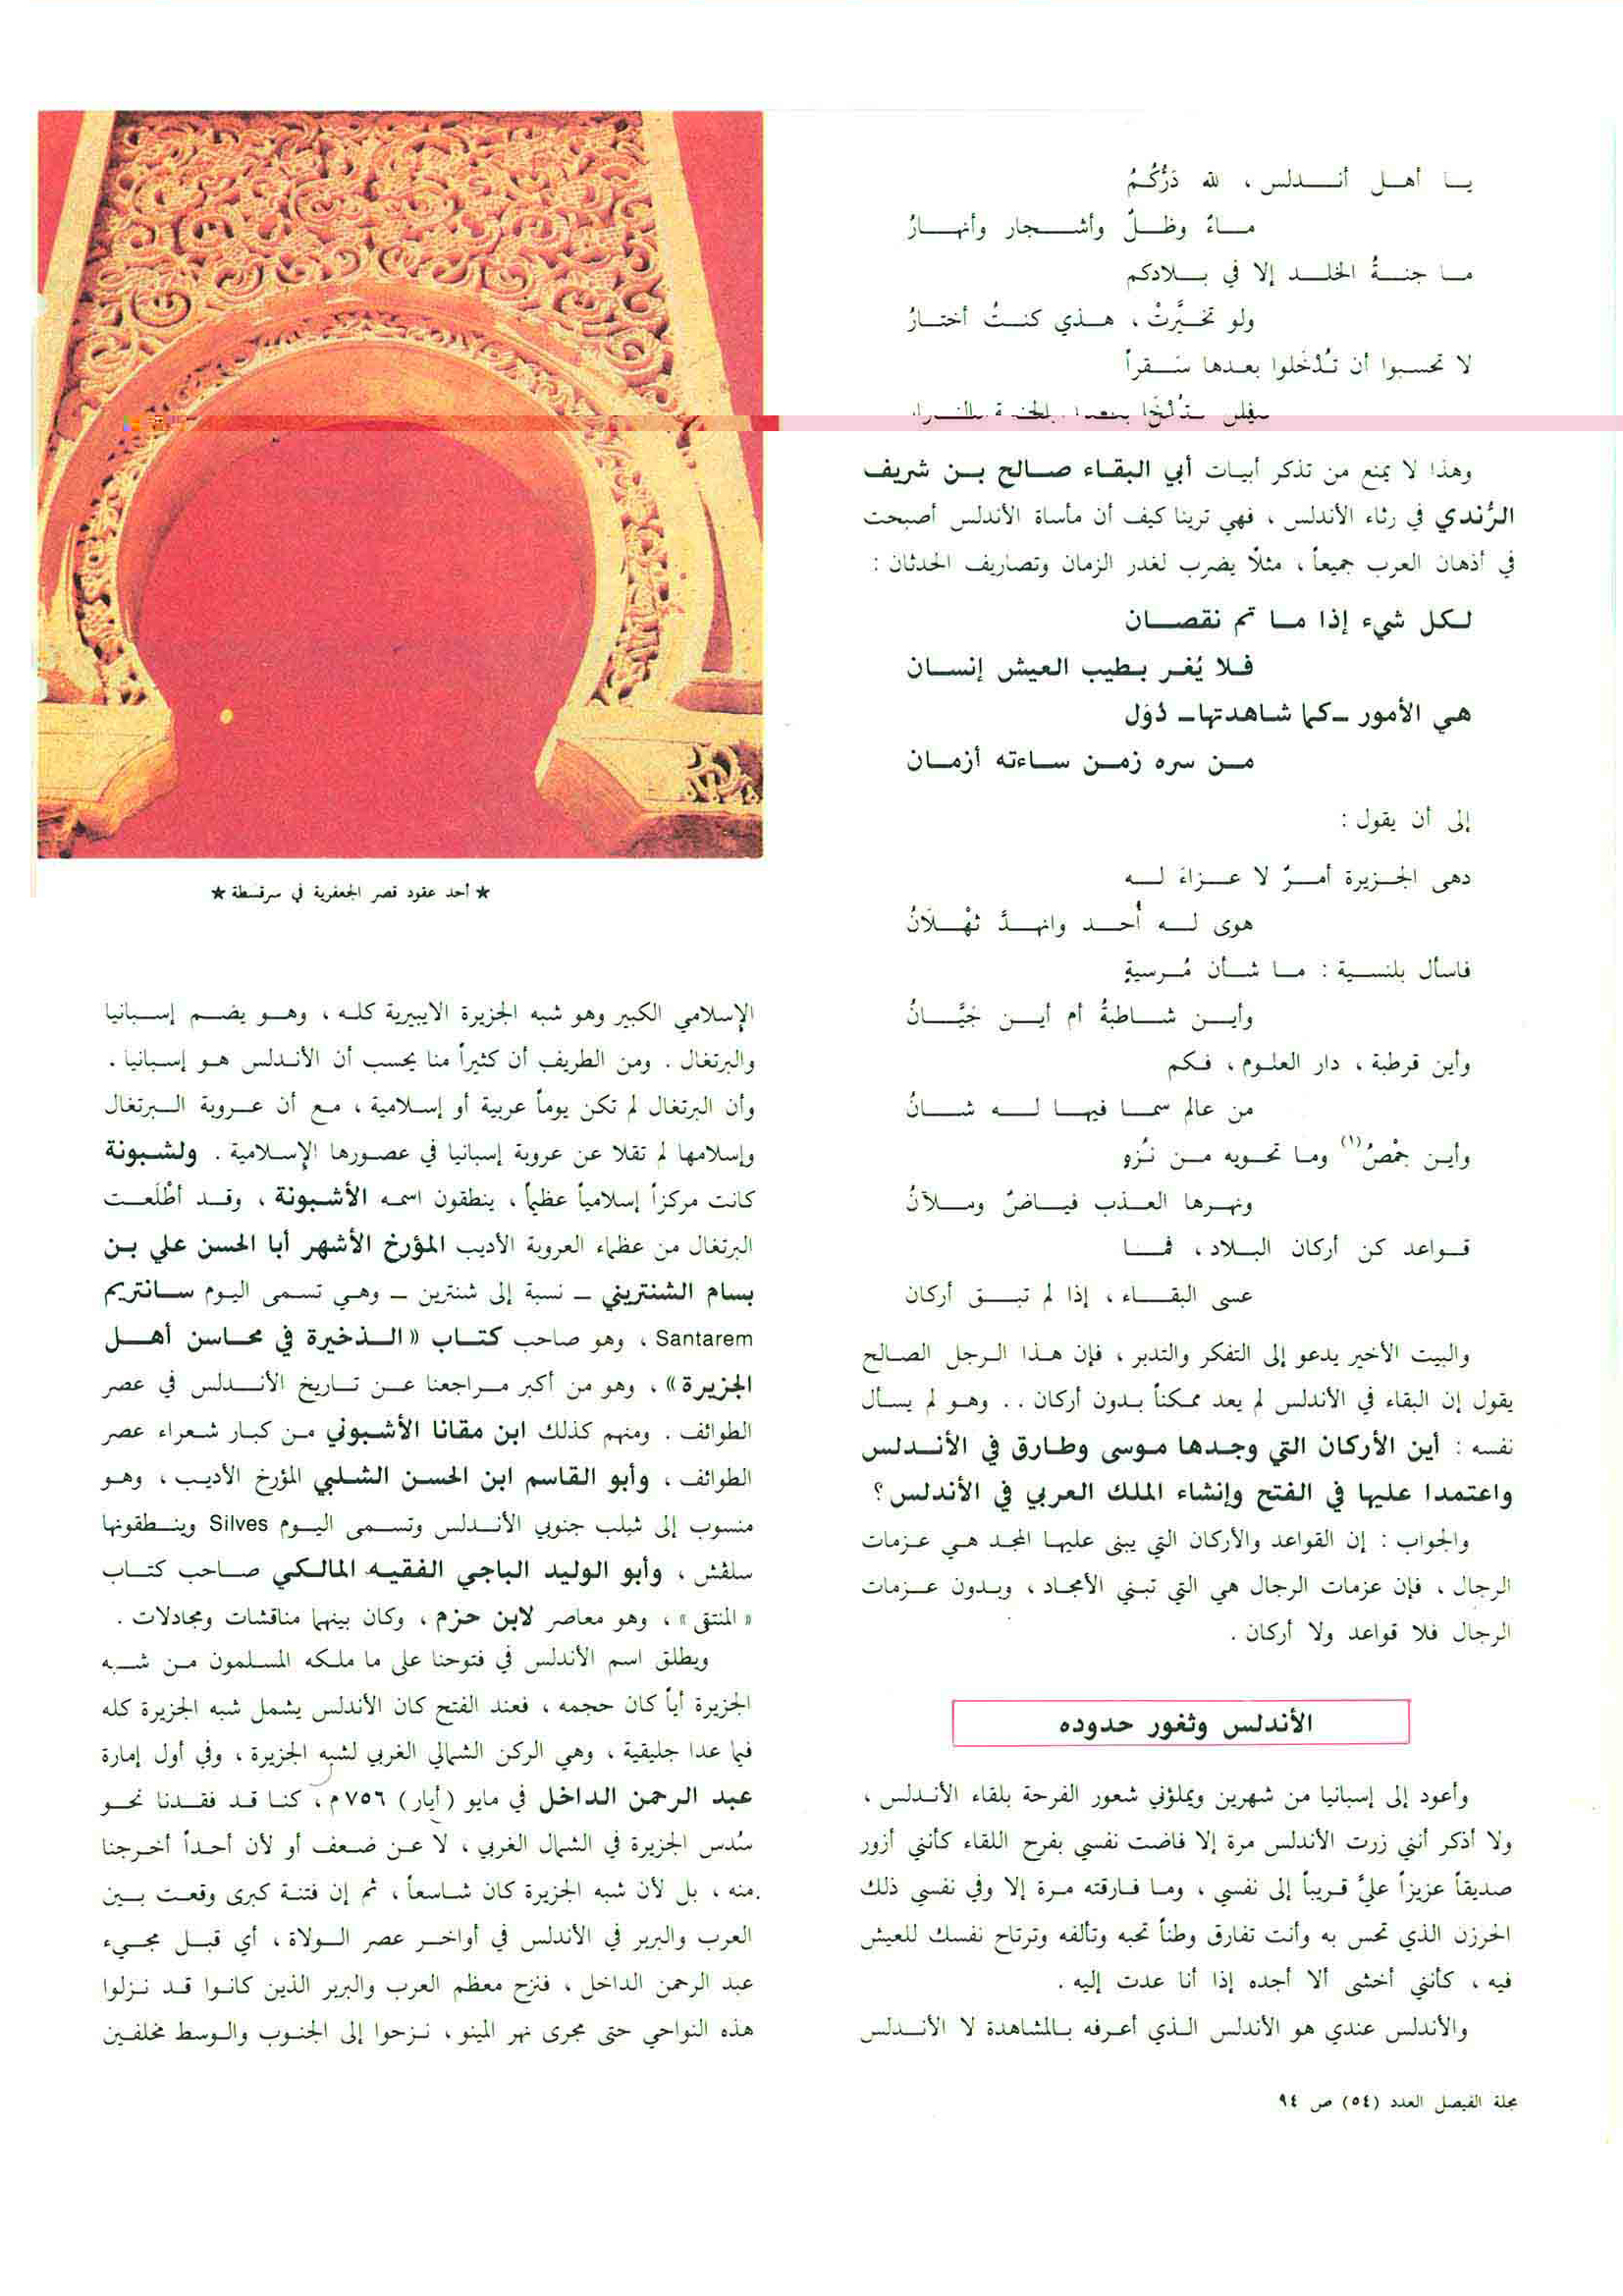 يا أهل أندلس ، لله دَرُّكُمُ
ماءٌ وظلٌ وأشجار وأنهارُ
ما جنةُ الخلد إلا في بلادكم
ولو تخيَّرتْ ، هذي كنتُ أختارُ
لا تحسبوا أن تُدْخَلوا بعدها سَقراً
وهذا لا يمنع من تذكر أبيات أبي البقاء صالح بن شريف
الرُّندي في رثاء الأندلس ، فهي ترينا كيف أن مأساة الأندلس أصبحت
في أذهان العرب جميعاً ، مثلاً يضرب لغدر الزمان وتصاريف الحدثان :
لكل شيء إذا ما تم نقصان
فلا يُغر بطيب العيش إنسان
هي الأمور ـ كما شاهدتها ـ دُوَل
من سره زمن ساءته أزمان
إلى أن يقول :
دهى الجزيرة أمرٌ لا عزاءَ له
هوى له أُحد وانهدَّ ثهْلَانُ
فاسأل بلنسية : ما شأن مُرسيةٍ
وأين شاطبةُ أم أين جَيَّانُ
وأين قرطبة ، دار العلوم ، فكم
من عالم سما فيها له شانُ
وأين حِمْصُ (١) وما تحويه من نُزهٍ
ونهرها العذب فياضٌ وملآنُ
قواعد كن أركان البلاد ، فما
عسى البقاء ، إذا لم تبق أركان
والبيت الأخير يدعو إلى التفكر والتدبر ، فإن هذا الرجل الصالح
يقول إن البقاء في الأندلس لم يعد ممكناً بدون أركان .. وهو لم يسأل
نفسه : أين الأركان التي وجدها موسى وطارق في الأندلس
واعتمدا عليها في الفتح وإنشاء الملك العربي في الأندلس ؟
والجواب : إن القواعد والأركان التي يبنى عليها المجد هي عزمات
الرجال ، فإن عزمات الرجال هي التي تبني الأمجاد ، وبدون عزمات
الرجال فلا قواعد ولا أركان .
الأندلس وثغور حدوده
وأعود إلى إسبانيا من شهرين ويملؤني شعور الفرحة بلقاء الأندلس ،
ولا أذكر أنني زرت الأندلس مرة إلا فاضت نفسي بفرح اللقاء كأنني أزور
صديقاً عزيزاً عليَّ قريباً إلى نفسي ، وما فارقته مرة إلا وفي نفسي ذلك
الحرزن الذي تحس به وأنت تفارق وطناً تحبه وتألفه وترتاح نفسك للعيش
فيه ، كأنني أخشى ألا أجده إذا أنا عدت إليه .
والأندلس عندي هو الأندلس الذي أعرفه بالمشاهدة لا الأندلس
★ أحد عقود قصر الجعفرية في سرقسطة ★
الإسلامي الكبير وهو شبه الجزيرة الايبيرية كله ، وهو يضم إسبانيا
والبرتغال . ومن الطريف أن كثيراً منا يحسب أن الأندلس هو إسبانيا .
وأن البرتغال لم تكن يوماً عربية أو إسلامية ، مع أن عروبة البرتغال
وإسلامها لم تقلا عن عروبة إسبانيا في عصورها الإسلامية . ولشبونة
كانت مركزاً إسلامياً عظيماً ، ينطقون اسمه الأشبونة ، وقد أطْلَعت
البرتغال من عظماء العروبة الأديب المؤرخ الأشهر أبا الحسن علي بن
بسام الشنتريني ـ نسبة إلى شنترين ـ وهي تسمى اليوم سانتريم
Santarem ، وهو صاحب كتاب « الذخيرة في محاسن أهل
الجزيرة » ، وهو من أكبر مراجعنا عن تاريخ الأندلس في عصر
الطوائف . ومنهم كذلك ابن مقانا الأشبوني من كبار شعراء عصر
الطوائف ، وأبو القاسم ابن الحسن الشلبي المؤرخ الأديب ، وهو
منسوب إلى شلب جنوبي الأندلس وتسمى اليوم Silves وينطقونها
سلفش ، وأبو الوليد الباجي الفقيه المالكي صاحب كتاب
« المنتقى » ، وهو معاصر لابن حزم ، وكان بينهما مناقشات ومجادلات .
ويطلق اسم الأندلس في فتوحنا على ما ملكه المسلمون من شبه
الجزيرة أياً كان حجمه ، فعند الفتح كان الأندلس يشمل شبه الجزيرة كله
فيما عدا جليقية ، وهي الركن الشمالي الغربي لشبه الجزيرة ، وفي أول إمارة
عبد الرحمن الداخل في مايو (أيار) ٧٥٦ م ، كنا قد فقدنا نحو
سُدس الجزيرة في الشمال الغربي ، لا عن ضعف أو لأن أحداً أخرجنا
منه ، بل لأن شبه الجزيرة كان شاسعاً ، ثم إن فتنة كبرى وقعت بين
العرب والبربر في الأندلس في أواخر عصر الولاة ، أي قبل مجيء
عبد الرحمن الداخل ، فنزح معظم العرب والبربر الذين كانوا قد نزلوا
هذه النواحي حتى مجرى نهر المينو ، نزحوا إلى الجنوب والوسط مخلفين
مجلة الفيصل العدد (٥٤) ص ٩٤